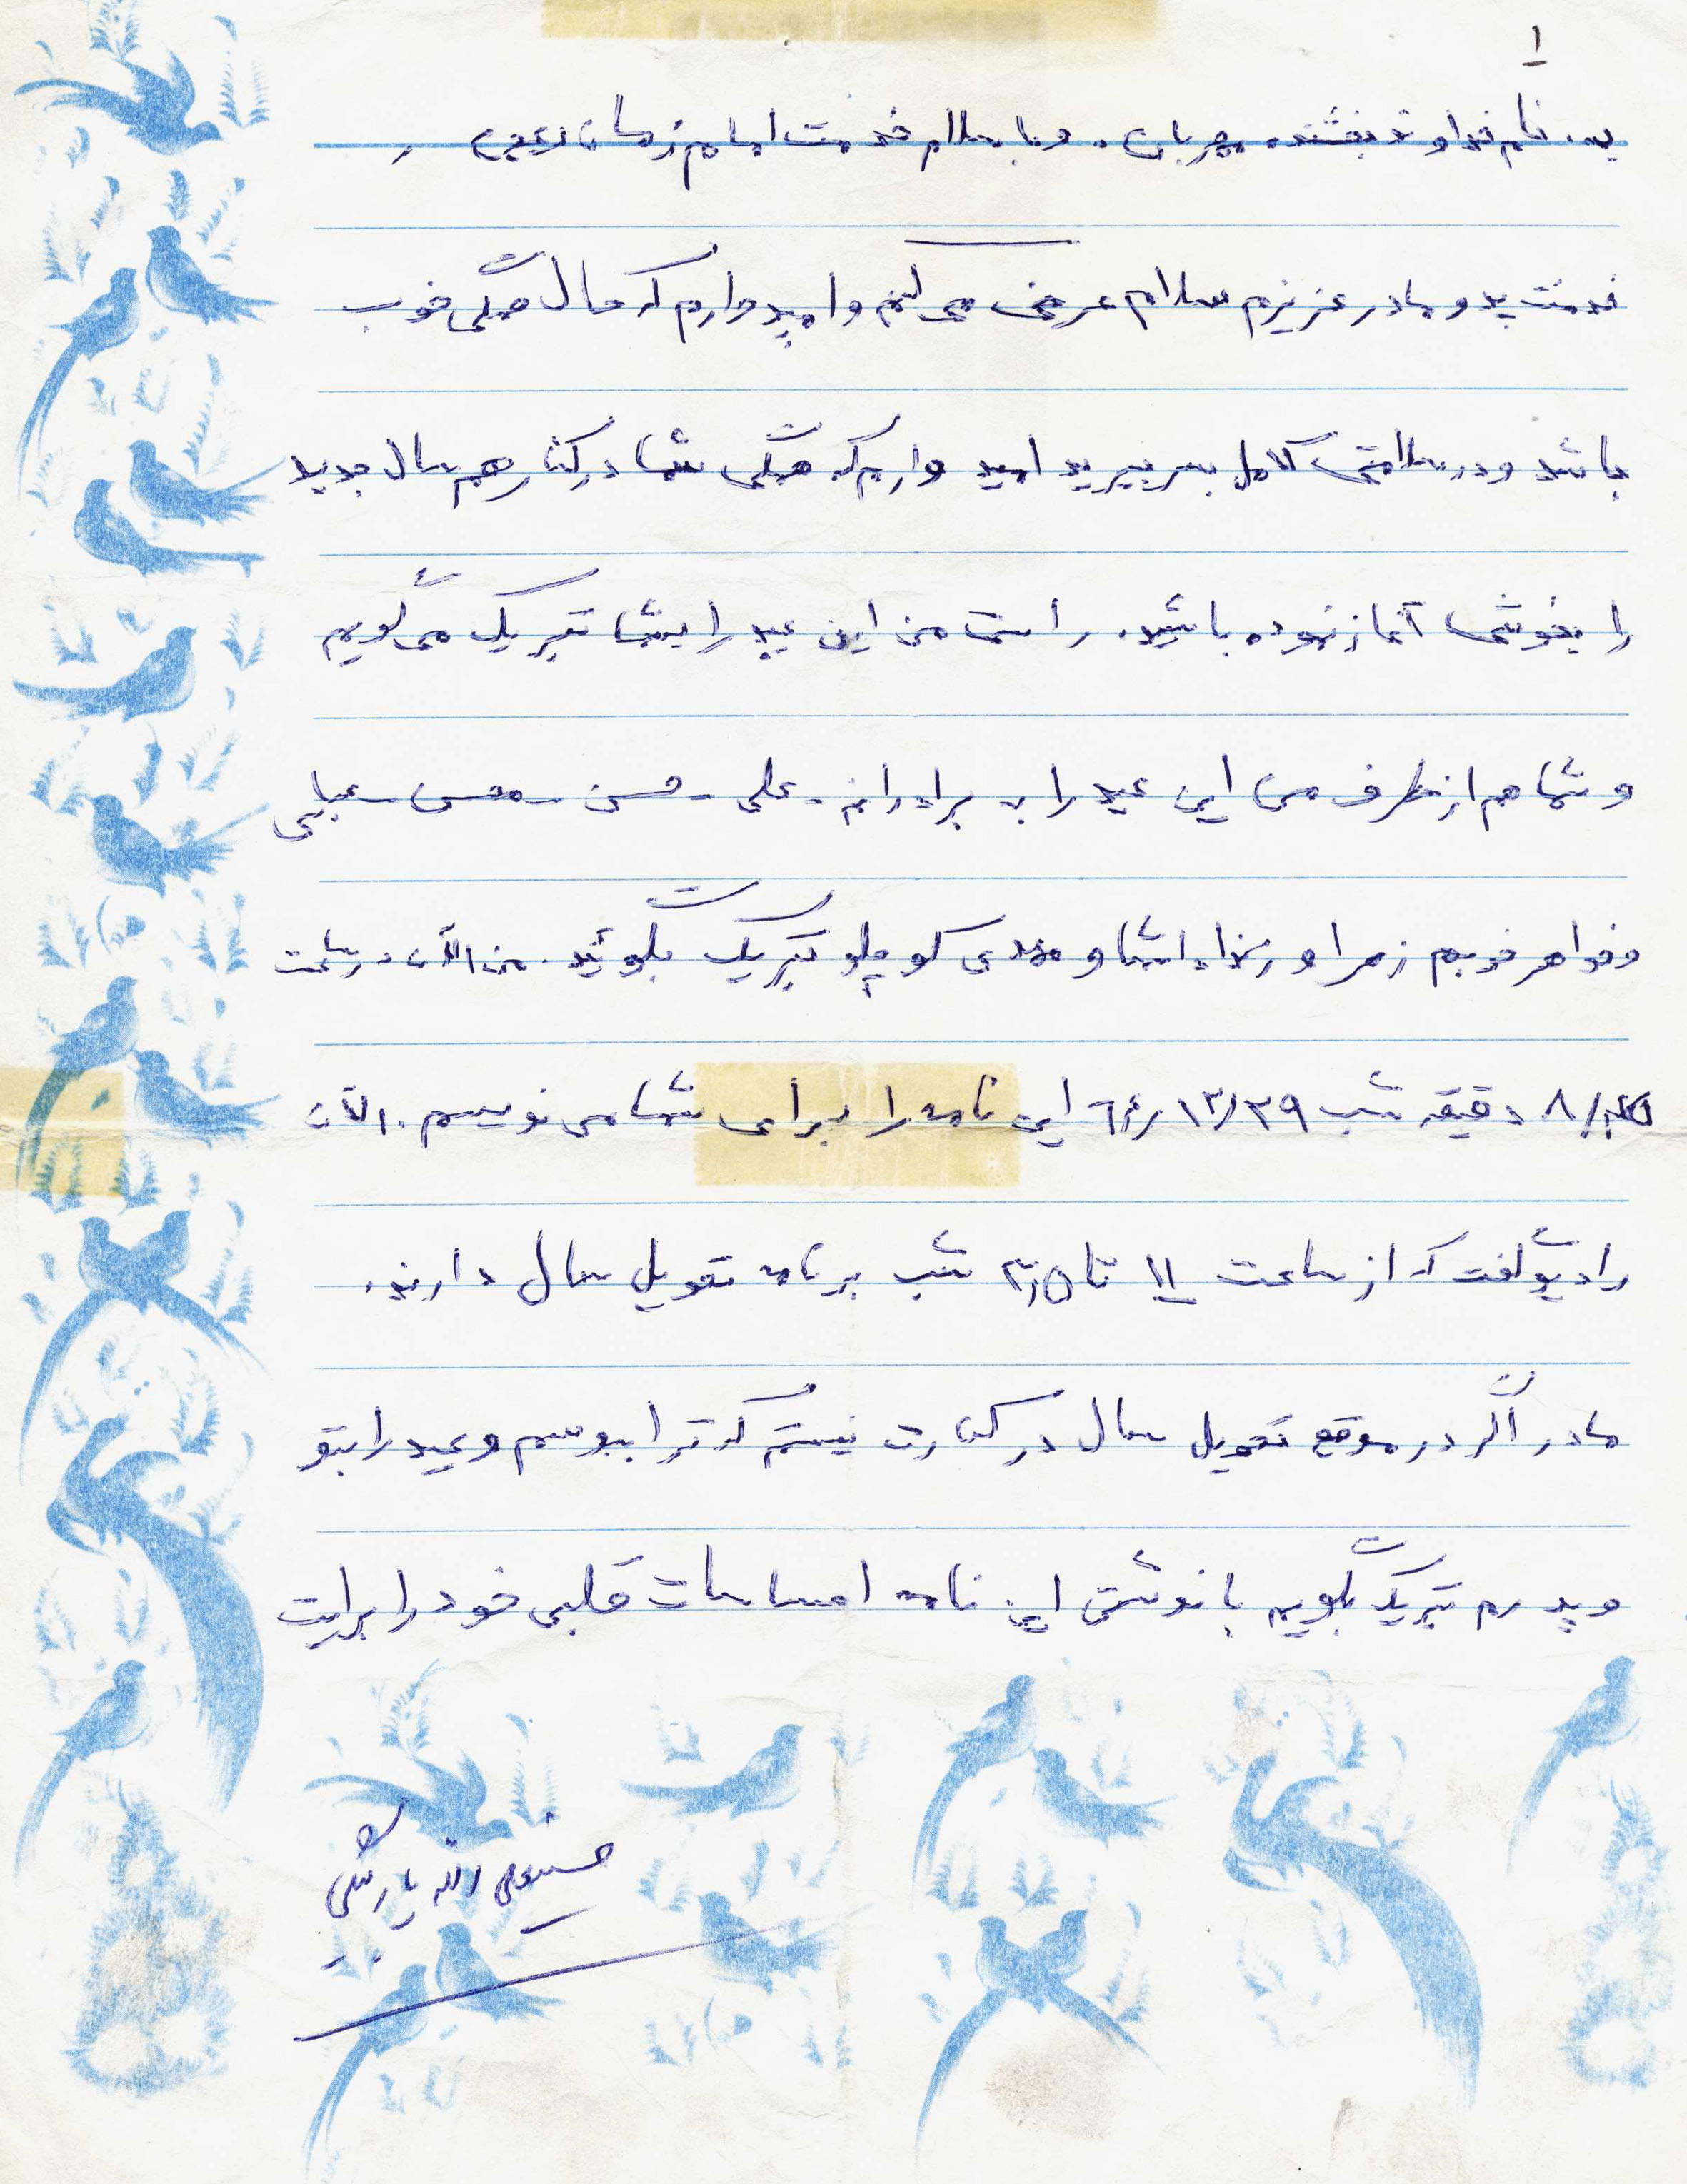 ۱
به نام خداوند بخشنده مهربان. و با سلام خدمت امام زمان (عج) و
خدمت پدر و مادر عزیزم سلام عرض می کنم و امیدوارم که حال همگی خوب
باشد و در سلامتی کامل بسر ببرید امید وارم که همگی شما در کنار هم سال جدید
را بخوشی آغاز نموده باشید. راستی من این عید را بشما تبریک می گویم
و شما هم از طرف من این عید را به برادرانم - علی - حسن - محسن - عباس
و خواهر خوبم زهرا و زنداداشها و مهدی کوچلو تبریک بگوئید. من الآن در ساعت
۸/ دقیقه شب ۶۴/۱۲/۲۹ این نامه را برای شما می نویسم. الآن
رادیو گفت که از ساعت ۱۱ تا ۲٫۵ شب برنامه تحویل سال دارند.
مادر اگر در موقع تحویل سال در کنارت نیستم که ترا ببوسم و عید را بتو
و پدرم تبریک بگویم با نوشتن این نامه احساسات قلبی خود را برایت
حسینعلی الله یار بیگی